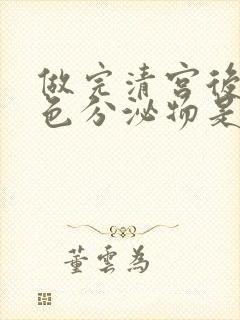 做完清宮後
色分泌物是
董雲為